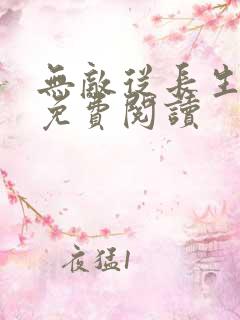 無敵從長生
免費閱讀
夜猛1